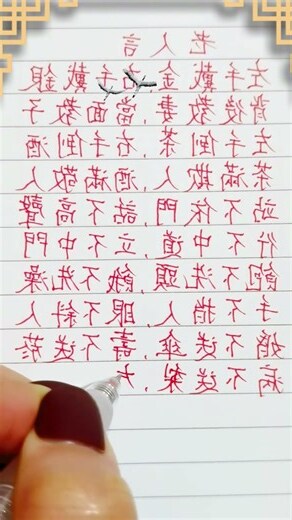 老人言
左手戴金,右手戴銀
背後教妻,當面教子
左手倒茶,右手倒酒
茶滿欺人,酒滿敬人
站不依門,話不高聲
行不中道,立不中門
飽不洗頭,餓不洗澡
手不指人,眼不斜人
婚不送傘,壽不送菸
病不送梨,